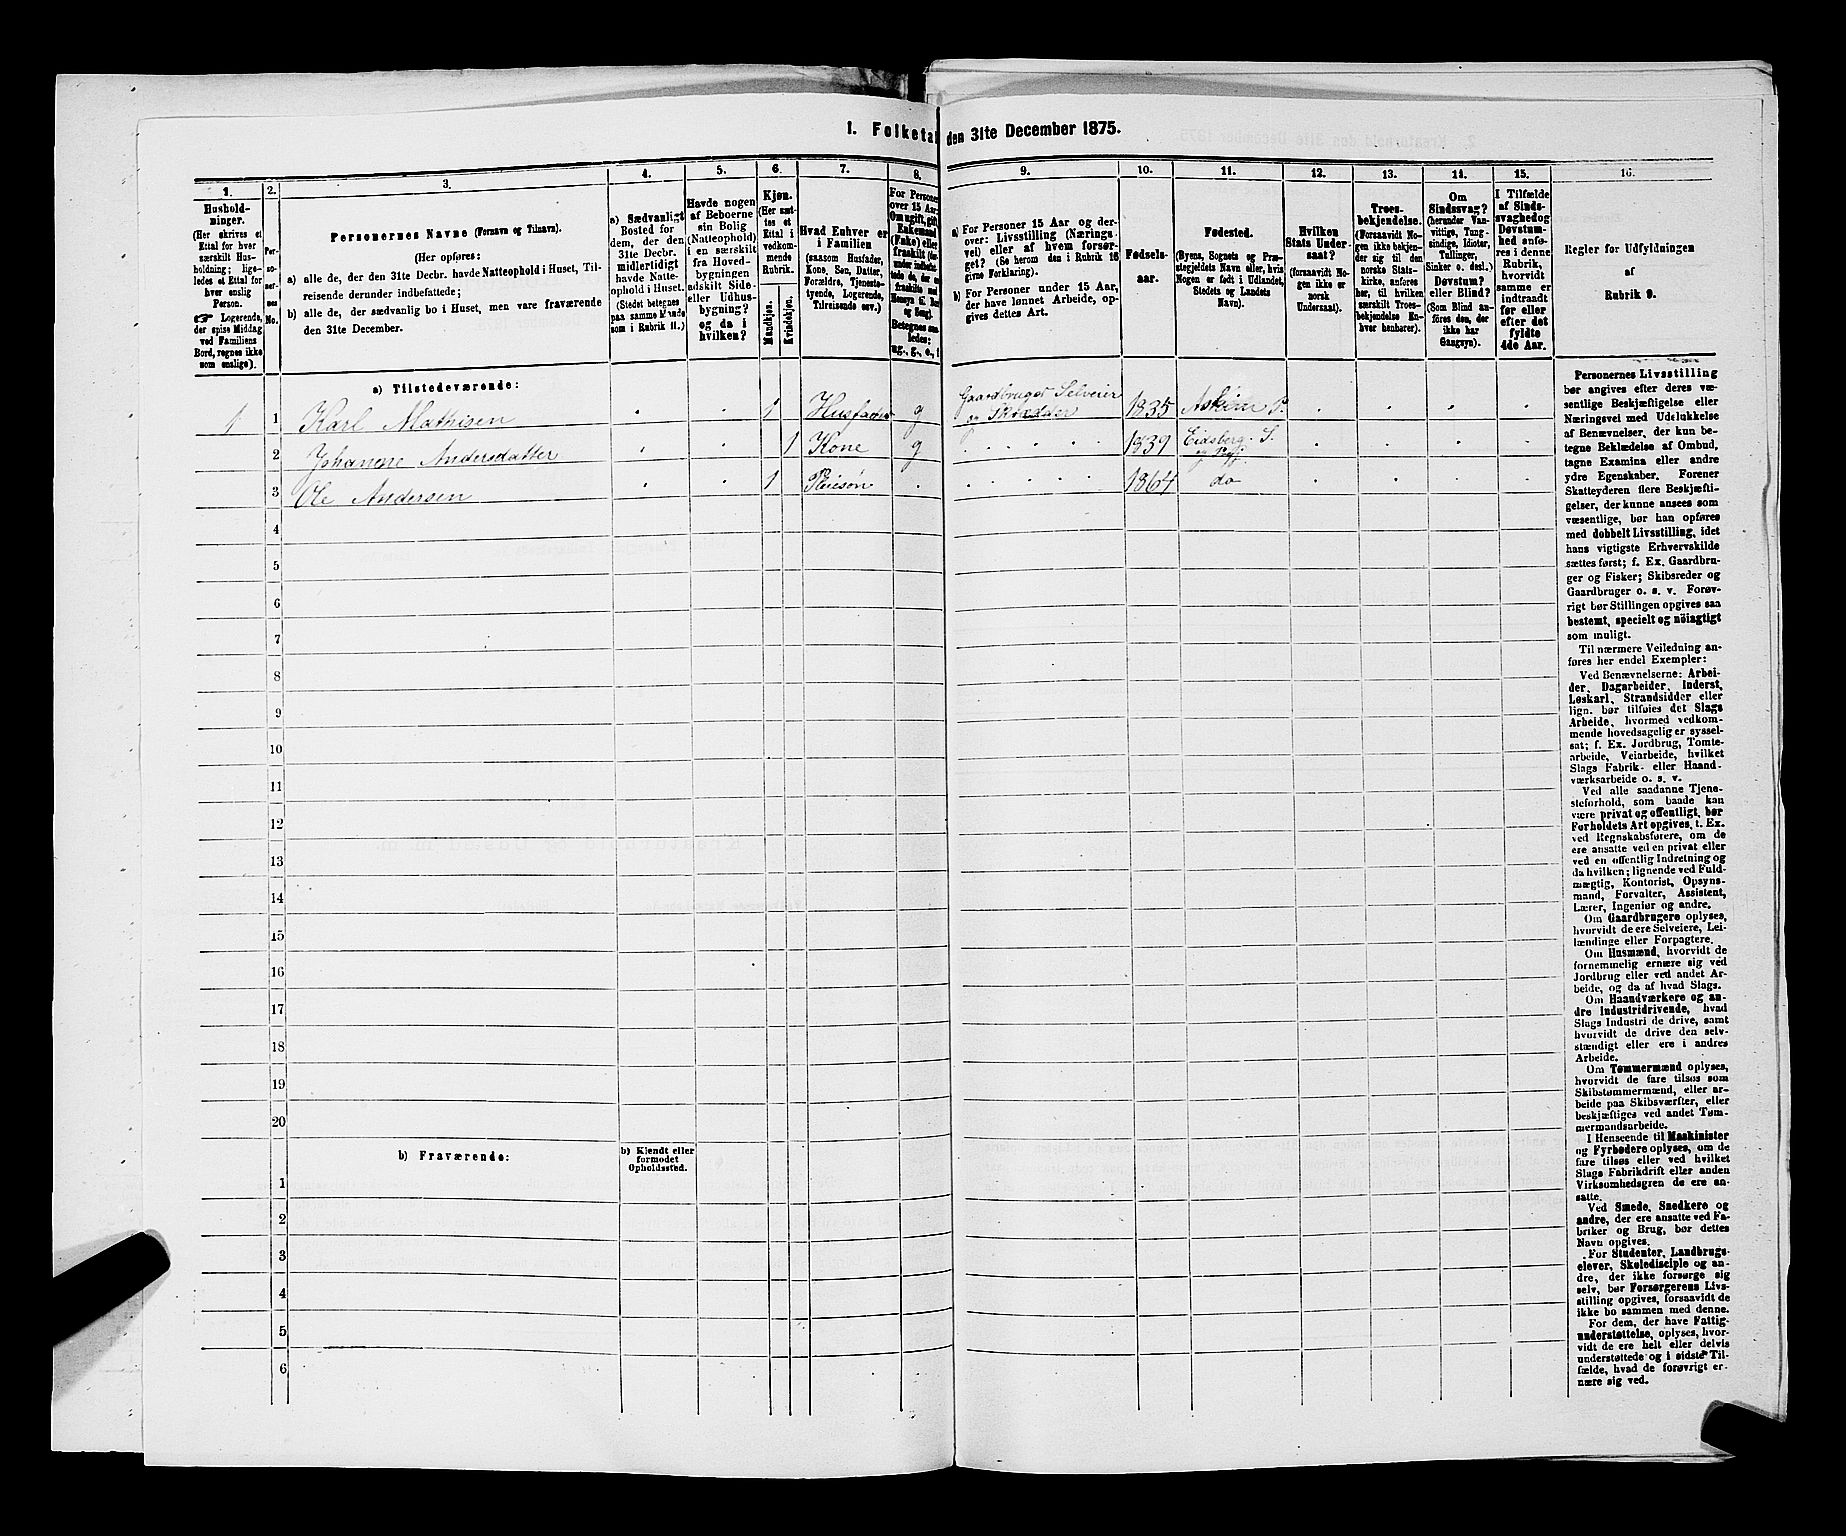 1. Folketal den 31te December 1875.
1. 2. 3. 4. 5. 6. 7. 8. 9. 10. 11. 12. 13. 14. 15. 16.
Hushold-
ninger.
(Her skrives et
Ettal for hver
særskilt Hus-
holdning; lige-
ledes et Ettal for
hver enslig
Person.
☞ Logerende,
der spise Middag
ved Familiens
Bord, regnes ikke
som enslige).
Per-
so-
ner-
nes
No.
Personernes Navne (Fornavn og Tilnavn).
(Her opføres:
a) alle de, der den 31te Decbr. havde Natteophold i Huset, Til-
reisende derunder indbefattede;
b) alle de, der sædvanlig bo i Huset, men vare fraværende
den 31te December.
a) Sædvanligt
Bosted for
dem, der den
31te Decbr.
midlertidigt
havde Natte-
ophold i Huset.
(Stedet betegnes
paa samme Maade
som i Rubrik 11.)
Havde nogen
af Beboerne
sin Bolig
(Natteophold)
i en særskilt
fra Hoved-
bygningen
adskilt Side-
eller Udhus-
bygning?
og da i
hvilken?
Kjøn.
(Her sæt-
tes et
Ettal i
vedkom-
mende
Rubrik.
Mandkjøn.
Kvindekjøn.
Hvad Enhver er
i Familien
(saasom Husfader,
Kone, Søn, Datter,
Forældre, Tjeneste-
tyende, Logerende,
Tilreisende osv.)
For Personer
over 15 Aar:
Om ugift, gift,
Enkemand
(Enke) eller
fraskilt
Betegnes saa-
ledes:
ug., g., e., f.
a) For Personer 15 Aar og der-
over: Livsstilling (Nærings-
vei) eller af hvem forsør-
get? (Se herom den i Rubrik 16
givne Forklaring).
b) For Personer under 15 Aar,
der have lønnet Arbeide, op-
gives dettes Art.
Fødsels-
aar.
Fødested.
(Byens, Sognets og Præ-
stegjeldets Navn eller, hvis
Nogen er født i Udlandet,
Stedets og Landets
Navn).
Hvilken
Stats Under-
saat?
(forsaavidt No-
gen ikke er
norsk
Undersaat).
Troes-
bekjendelse.
(Forsaavidt No-
gen ikke bekjen-
der sig til den
norske Stats-
kirke, anføres
her, til hvilken
særskilt Troes-
bekjendelse En-
hver henhører).
Om
Sindssvag?
(herunder Van-
vittige, Tung-
sindige, Idioter,
Tullinger,
Sinker o. desl.)
Døvstum?
eller Blind?
(Som Blind an-
føres den, der
ikke har
Gangsyn).
I Tilfælde
af Sinds-
svaghed og
Døvstum-
hed anfø-
res i denne
Rubrik,
hvorvidt
samme er
indtraadt
før eller
efter det
fyldte
4de Aar.
Regler for Udfyldningen
af
Rubrik 9.
a) Tilstedeværende:
1 1 Karl Mathisen 1 Husfader g Gaardbruger Selveier
og Skrædder 1835 Askim P.
2 Johanne Andersdatter 1 Kone g 1839 Eidsberg S.
og Pgj.
3 Ole Andersen 1 Pleiesøn 1864 do
4
5
6
7
8
9
10
11
12
13
14
15
16
17
18
19
20
b) Fraværende:
b) Kjendt eller
formodet
Opholdssted.
1
2
3
4
5
6
Personernes Livsstilling
bør angives efter deres væ-
sentlige Beskjæftigelse eller
Næringsvei med Udelukkelse
af Benævnelser, der kun be-
tegne Beklædelse af Ombud,
tagne Examina eller andre
ydre Egenskaber. Forener
Skatteyderen flere Beskjæfti-
gelser, der kunne ansees som
væsentlige, bør han opføres
med dobbelt Livsstilling, idet
hans vigtigste Erhvervskilde
sættes først; f. Ex. Gaardbru-
ger og Fisker; Skibsreder og
Gaardbruger o. s. v. Forøv-
rigt bør Stillingen opgives saa
bestemt, specielt og nøiagtigt
som muligt.
Til nærmere Veiledning an-
føres her endel Exempler:
Ved Benævnelserne: Arbei-
der, Dagarbeider, Inderst,
Løskarl, Strandsidder eller
lign. bør tilføies det Slags
Arbeide, hvormed vedkom-
mende hovedsagelig er syssel-
sat; f. Ex. Jordbrug, Tomte-
arbeide, Veiarbeide, hvilket
Slags Fabrik- eller Haand-
værksarbeide o. s. v.
Ved alle saadanne Tjene-
steforhold, som baade kan
være privat og offentligt, bør
Forholdets Art opgives, t. Ex.
ved Regnskabsførere, om de
ere ansatte ved en privat eller
ved en offentlig Indretning og
da hvilken; lignende ved Fuld-
mægtig, Kontorist, Opsyns-
mand, Forvalter, Assistent,
Lærer, Ingeniør og andre.
Om Gaardbrugere oplyses,
hvorvidt de ere Selveiere, Lei-
lændinge eller Forpagtere.
Om Husmænd, hvorvidt de
fornemmelig ernære sig ved
Jordbrug eller ved andet Ar-
beide, og da af hvad Slags.
Om Haandværkere og an-
dre Industridrivende, hvad
Slags Industri de drive, samt
hvorvidt de drive den selv-
stændigt eller ere i andres
Arbeide.
Om Tømmermænd oplyses,
hvorvidt de fare tilsøs som
Skibstømmermænd, eller ar-
beide paa Skibsværfter, eller
beskjæftiges ved andet Tøm-
mermandsarbeide.
I Henseende til Maskinister
og Fyrbødere oplyses, om de
fare tilsøs eller ved hvilket
Slags Fabrikdrift eller anden
Virksomhedsgren de ere an-
satte.
Ved Smede, Snedkere og
andre, der ere ansatte ved Fa-
briker og Brug, bør dettes
Navn opgives.
For Studenter, Landbrugs-
elever, Skoledisciple og an-
dre, der ikke forsørge sig
selv, bør Forsørgerens Livs-
stilling opgives, forsaavidt de
ikke bo sammen med denne.
For dem, der have Fattig-
understøttelse, oplyses, hvor-
vidt de ere helt eller delvis
understøttede og i sidste Til-
fælde, hvad de forøvrigt er-
nære sig ved.